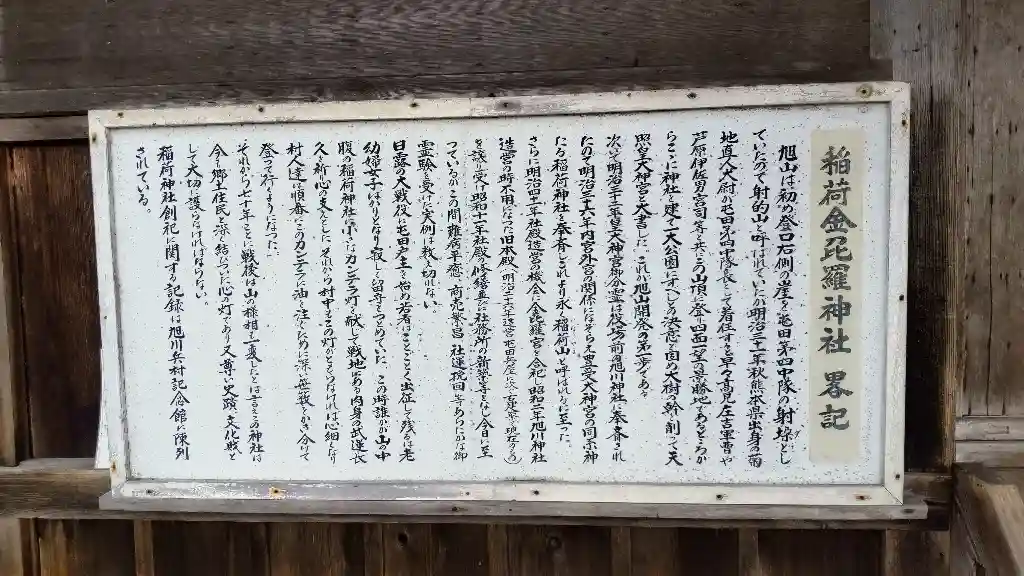 稲荷金毘羅神社 畧記
旭山は初め登口右側の崖を屯田第四中隊の射垜とし
ていたので射的山と呼ばれていたが明治三十一年秋熊本県出身の菊
地真人大尉が屯田第四中隊長として着任すると早々高見庄吉軍曹や
芦原伊佐男宮司等と共にこの山頂に登り四面一望の景勝地であるところか
らここに神社を建て一大公園にすべしとの決意を固め大樹の幹を削って天
照皇大神宮と大書した、これが旭山開発の第一歩である。
次で明治三十二年皇大神宮御分霊は伏宮前旭川神社に奉斎され
たので明治三十六年内宮外宮の関係になぞらえ豊受大神宮の同系神
たる稲荷神社を奉斎しそれより永く稲荷山と呼ばれるに至った。
さらに明治四十一年社殿造営の機会に金毘羅宮を合祀し昭和二年旭川神社
造営の時不用になった旧本殿(明治三十六年建宮屯田兵屋に次ぐ古い建築で現在のもの)
を譲り受け昭和十一年社殿の修繕並に社務所の新築等をなし今日に至
っているがこの間難病平癒、商売繁昌、社運挽回、等あらたかな御
霊験を受けた実例は数え切れない。
日露の大戦役で屯田の主を始め若者はことごとく出征して残るは老
幼婦女子ばかりとなり寂しい留守をつとめていた、この時誰かが山の中
腹の稲荷神社に小さなカンテラの灯を献じて戦地にある肉身の武運長
久を祈り心の支えとした、それから村中もこの灯がともらなければ心細くなり
村人達は順番にこのカンテラに油を注ぐために深い笹薮をかき分けて
登って行くようになった。
それから七十年ことに戦後は山の様相も一変したが一ぱ言うとこの神社は
今も郷土住民と深く結びついた心の灯であり又尊い史蹟の文化財と
して大切に護らなければならない。
稲荷神社創祀に関する記録は旭川兵村記念館に陳列
されている。